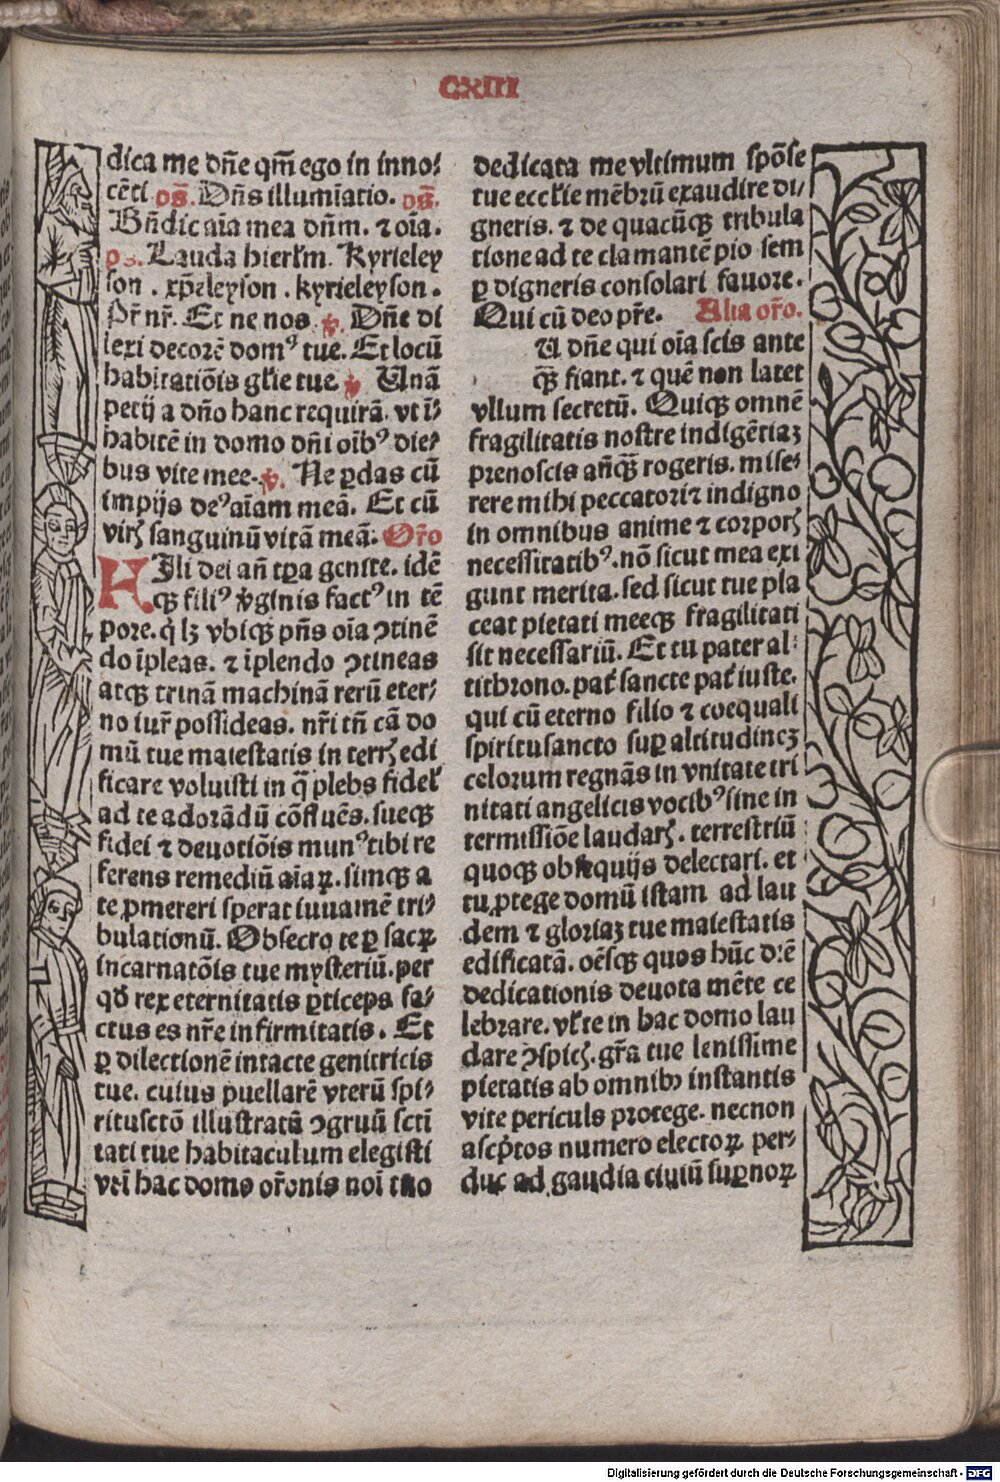 CXIII
dica me dñe qm̄ ego in inno⸗
cēti ps̄. Dñs illumīatio. ps̄.
Bñdic aīa mea dñm. ⁊ oīa.
ps. Lauda hierlm̄. Kyrieley
son . xp̄eleyson . kyrieleyson .
Pr̄ nr̄. Et ne nos ꝟ. Dñe di
lexi decorē domꝰ tue. Et locū
habitatiōis gl̄ie tue ꝟ Unā
petij a dño hanc requirā. vt ī⸗
habitē in domo dñi oībꝰ die⸗
bus vite mee. ꝟ. Ne ꝑdas cū
impijs deꝰ aīam meā. Et cū
virꝭ sanguinū vitā meā. Or̄o
Fili dei añ tp̄a genite. idē
qꝫ filiꝰ v̄ginis factꝰ in tē
pore. q̇ lꝫ vbiqꝫ pñs oīa ꝯtinē
do īpleas. ⁊ īplendo ꝯtineas
atqꝫ trinā machinā rerū eter⸗
no iur̄ possideas. nr̄i tñ cā do
mū tue maiestatis in terrꝭ edi
ficare voluisti in q̄ plebs fidel̄
ad te adorādū cōfluēs. sueqꝫ
fidei ⁊ deuotiōis munꝰ tibi re
ferens remediū aīaꝝ. simqꝫ a
te ꝓmereri sperat iuuamē tri⸗
bulationū. Obsecro te ꝑ sacꝝ
incarnatōis tue mysteriū. per
qd̄ rex eternitatis ꝑticeps fa⸗
ctus es nr̄e infirmitatis. Et
ꝑ dilectionē intacte genitricis
tue. cuius puellarē vterū spi⸗
ritusctō illustratū ꝯgruū scti
tati tue habitaculum elegisti
vti hac domo or̄onis noī tuo
dedicata me vltimum spōse
tue eccl̄ie mēbrū exaudire di⸗
gneris. ⁊ de quacūqꝫ tribula
tione ad te clamantē pio sem
ꝑ digneris consolari fauore.
Qui cū deo pr̄e. Alia or̄o.
U dñe qui oīa scis ante
qꝫ fiant. ⁊ quē non latet
vllum secretū. Quiqꝫ omnē
fragilitatis nostre indigētiaꝫ
prenoscis añqꝫ rogeris. mise⸗
rere mihi peccatori ⁊ indigno
in omnibus anime ⁊ corporꝭ
necessitatibꝰ. nō sicut mea exi
gunt merita. sed sicut tue pla
ceat pietati meeqꝫ fragilitati
sit necessariū. Et tu pater al⸗
tithrono. pat̄ sancte pat̄ iuste.
qui cū eterno filio ⁊ coequali
spiritusancto suꝑ altitudineꝫ
celorum regnās in vnitate tri
nitati angelicis vocibꝰ sine in
termissiōe laudarꝭ. terrestriū
quoqꝫ obsequijs delectari. et
tu ꝓtege domū istam ad lau
dem ⁊ gloriaꝫ tue maiestatis
edificatā. oēsqꝫ quos hūc diē
dedicationis deuota mēte ce
lebrare. vl̄re in hac domo lau
dare ꝯspicꝭ. gr̄a tue lenissime
pietatis ab omnibꝰ instantis
vite periculs protege. necnon
ascp̄tos numero electoꝝ per⸗
duc ad gaudia ciuiū suꝑnoꝝ
Digitalisierung gefördert durch die Deutsche Forschungsgemeinschaft - DFG